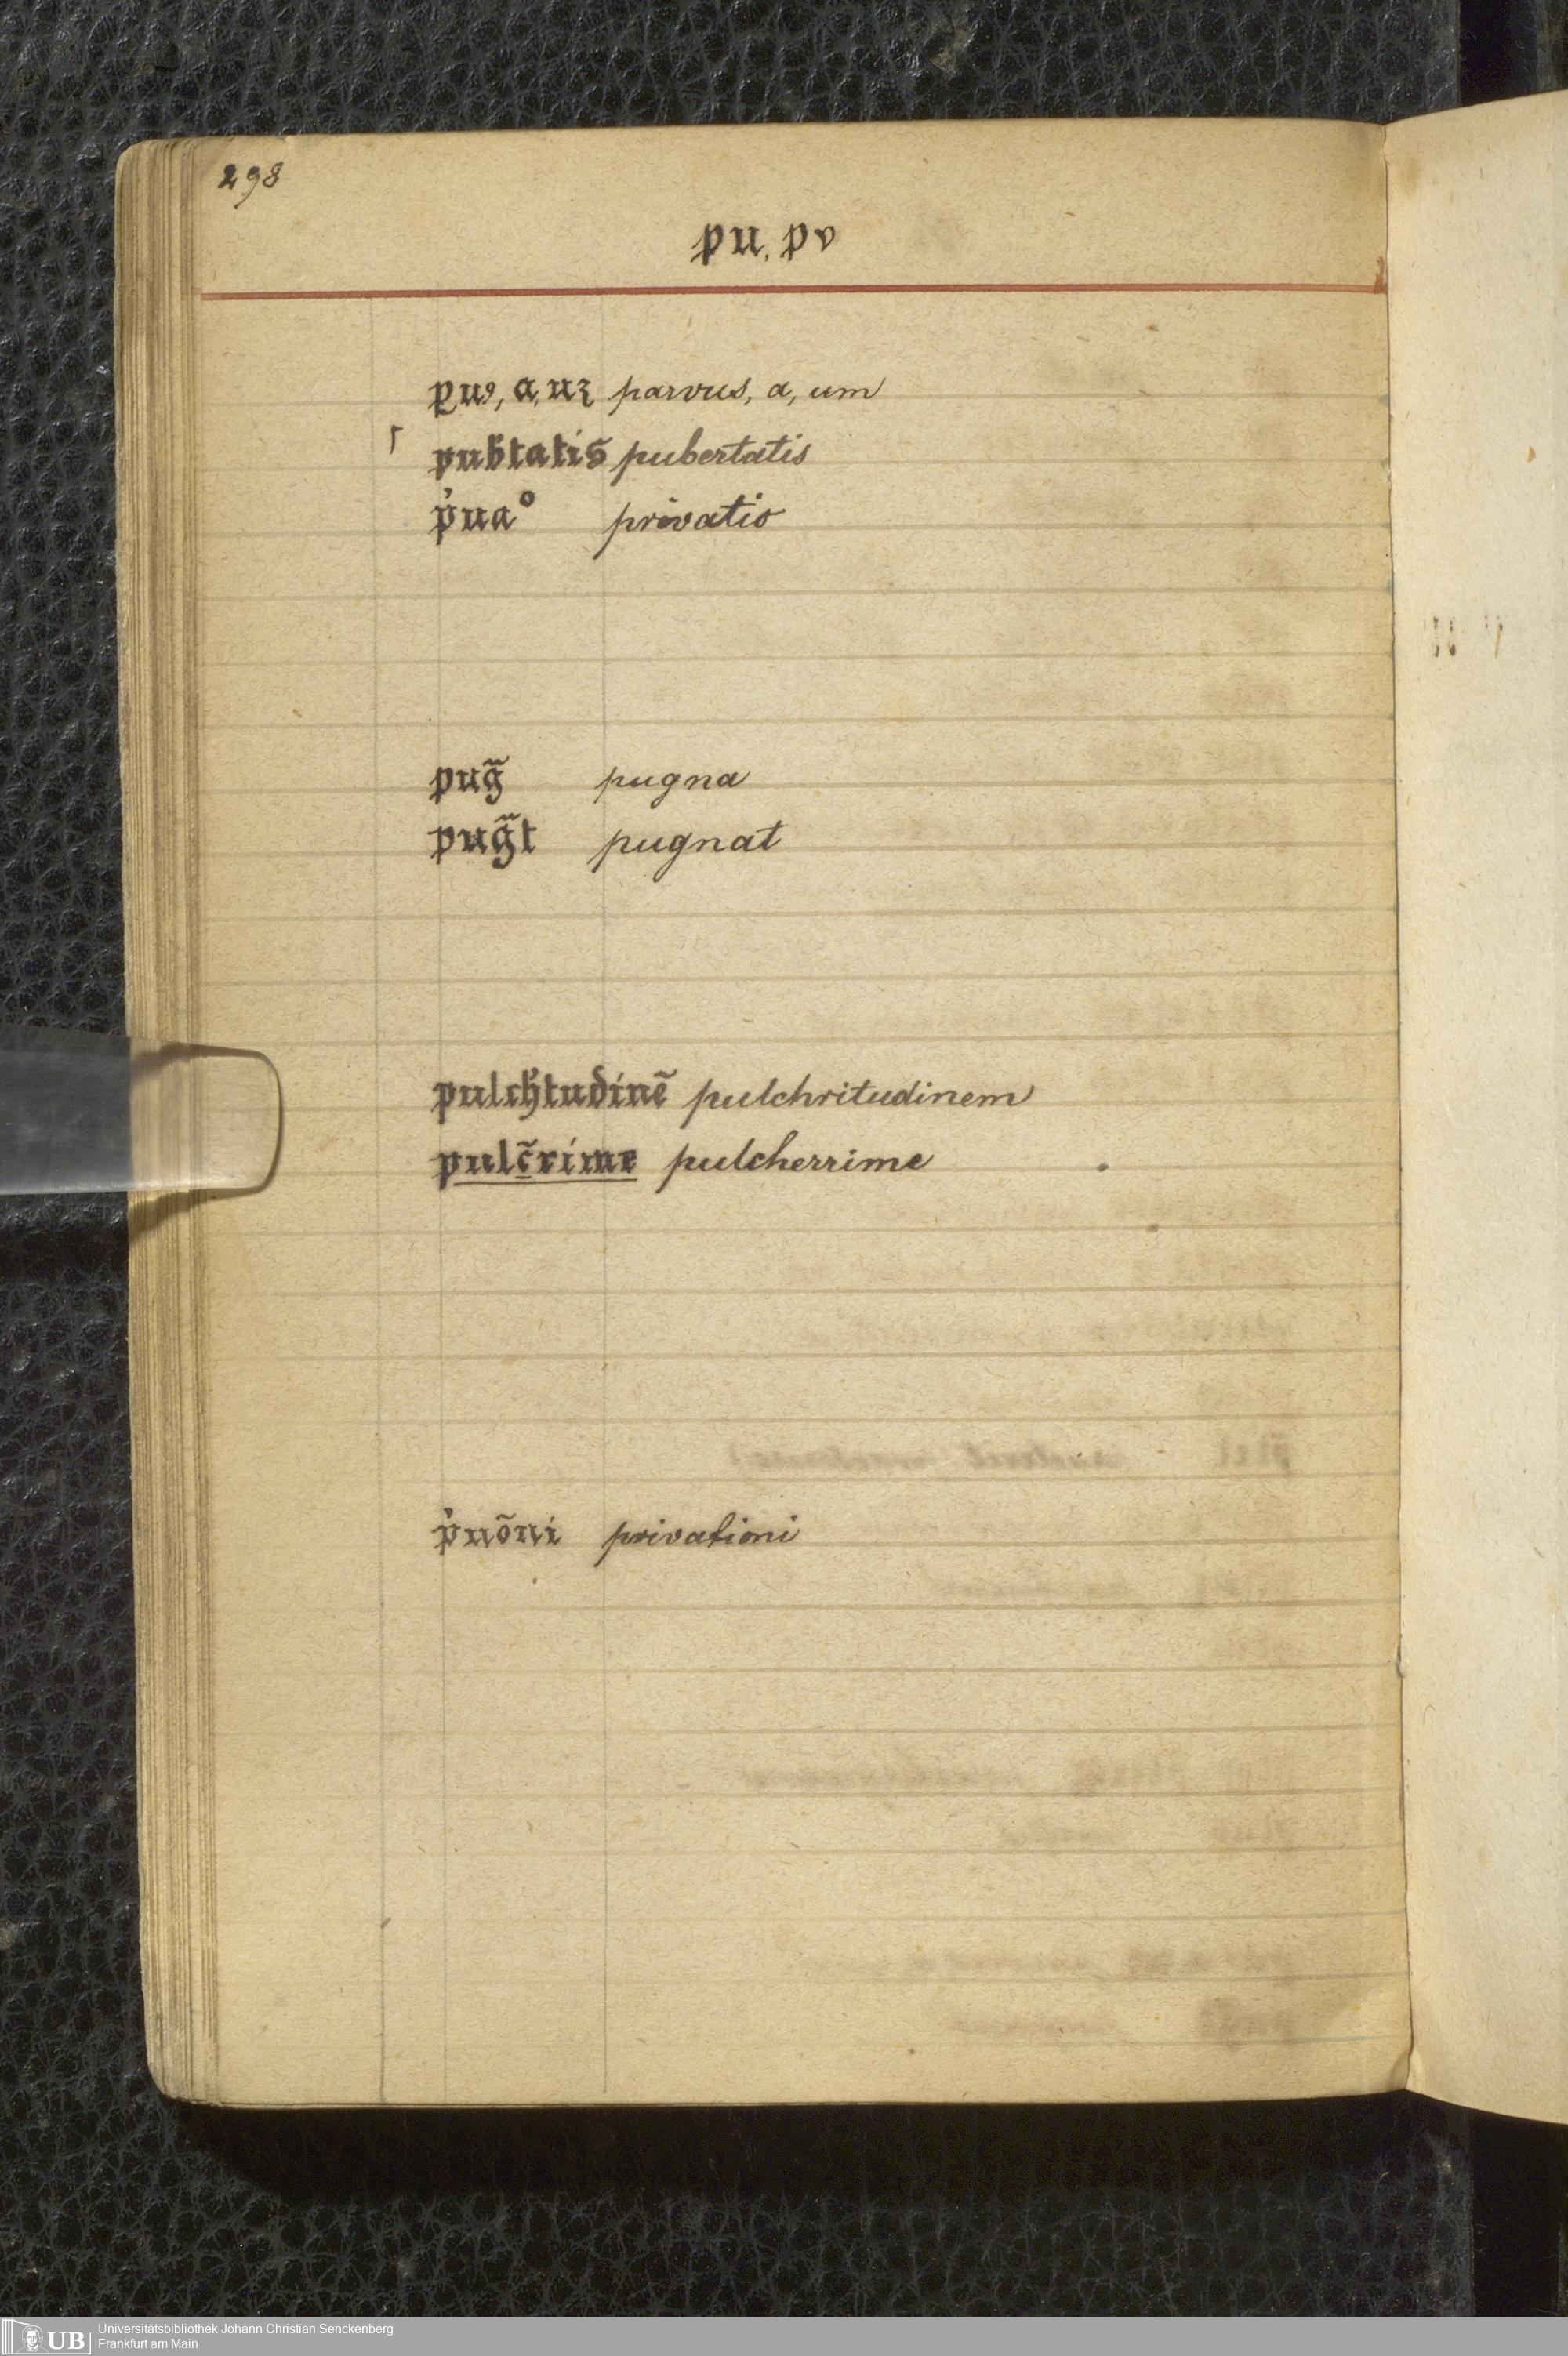 298
pu, pv
ꝑuꝰ, a, uꝫ parvus, a, um
pub̃tatis pubertatis
p̓uaᵒ privatio
pug̃ pugna
pug̃t pugnat
pulch̓tudinẽ pulchritudinem
pulc̃rime pulcherrime
p̓uõni privationi
UB Universitätsbibliothek Johann Christian Senckenberg
Frankfurt am Main